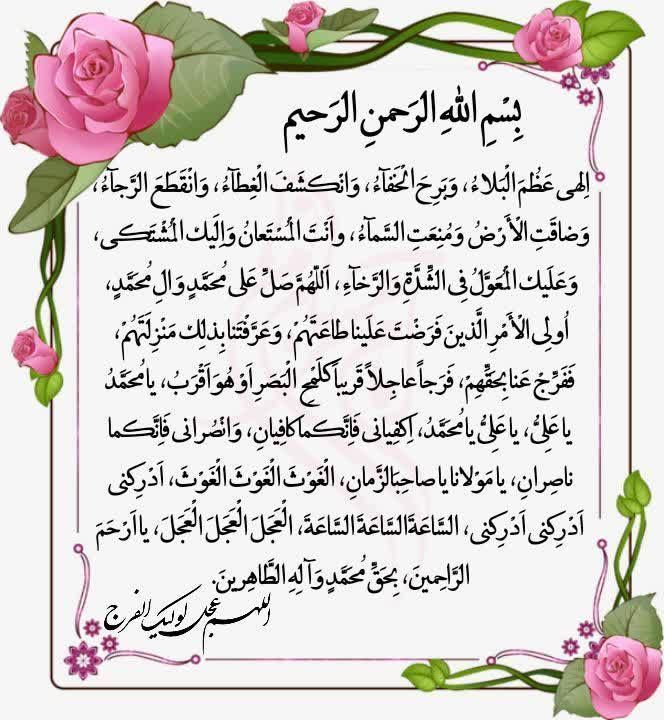 بِسْمِ اللهِ الرَحمنِ الرَحیم
اِلهی عَظُمَ الْبَلاءُ، وَبَرِحَ الْخَفاَّءُ، وَانْکشَفَ الْغِطاَّءُ، وَانْقَطَعَ الرَّجاَّءُ،
وَضاقَتِ الْأَرْضُ وَمُنِعَتِ السَّماَّءُ، واَنْتَ الْمُسْتَعانُ وَاِلَیك الْمُشْتَکی،
وَعَلَیك الْمُعَوَّلُ فِی الشِّدَّةِ وَالرَّخاَّءِ، اَللّهُمَّ صَلِّ عَلی مُحَمَّدٍ وَالِ مُحَمَّدٍ،
اُولِی الْأَمْرِ الَّذینَ فَرَضْتَ عَلَینا طاعَتَهُمْ، وَعَرَّفْتَنا بِذلِك مَنْزِلَتَهُمْ،
فَفَرِّجْ عَنا بِحَقِّهِمْ، فَرَجاً عاجِلاً قَریباً کلَمْحِ الْبَصَرِ اَوْ هُوَ اَقْرَبُ، یا مُحَمَّدُ
یا عَلِیُّ، یا عَلِیُّ یا مُحَمَّدُ، اِکفِیانی فَاِنَّکما کافِیانِ، وَانْصُرانی فَاِنَّکما
ناصِرانِ، یا مَوْلانا یا صاحِبَ الزَّمانِ، الْغَوْثَ الْغَوْثَ الْغَوْثَ، اَدْرِکنی
اَدْرِکنی اَدْرِکنی، السَّاعَةَ السَّاعَةَ السَّاعَةَ، الْعَجَلَ الْعَجَلَ الْعَجَلَ، یا اَرْحَمَ
الرَّاحِمینَ، بِحَقِّ مُحَمَّدٍ وَآلِهِ الطَّاهِرینَ.
اللهم عجل لولیک الفرج